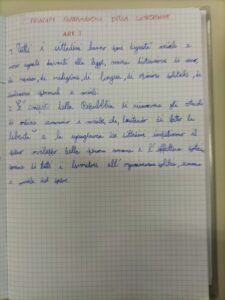 PRINCIPI FONDAMENTALI DELLA COSTITUZIONE
ART. 3
1 Tutti i cittadini hanno pari dignità sociale e
sono eguali davanti alla legge, senza distinzione di sesso,
di razza, di religione, di lingua, di opinioni politiche, di
condizioni personali e sociali.
2 È compito della Repubblica di rimuovere gli ostacoli
di ordine economico e sociale, che, limitando di fatto la
libertà e la eguaglianza dei cittadini impediscono il
pieno sviluppo della persona umana e l'effettiva
di tutti i lavoratori all'organizzazione politica, economica
e sociale del paese